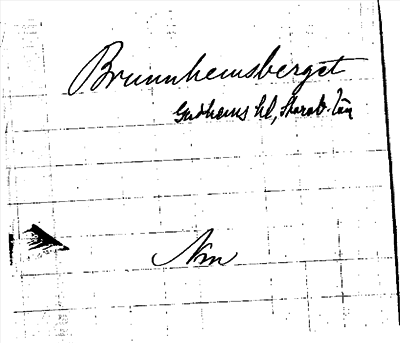 Brunnhemsberget
Gudhems hd, Skarab. län
Nm